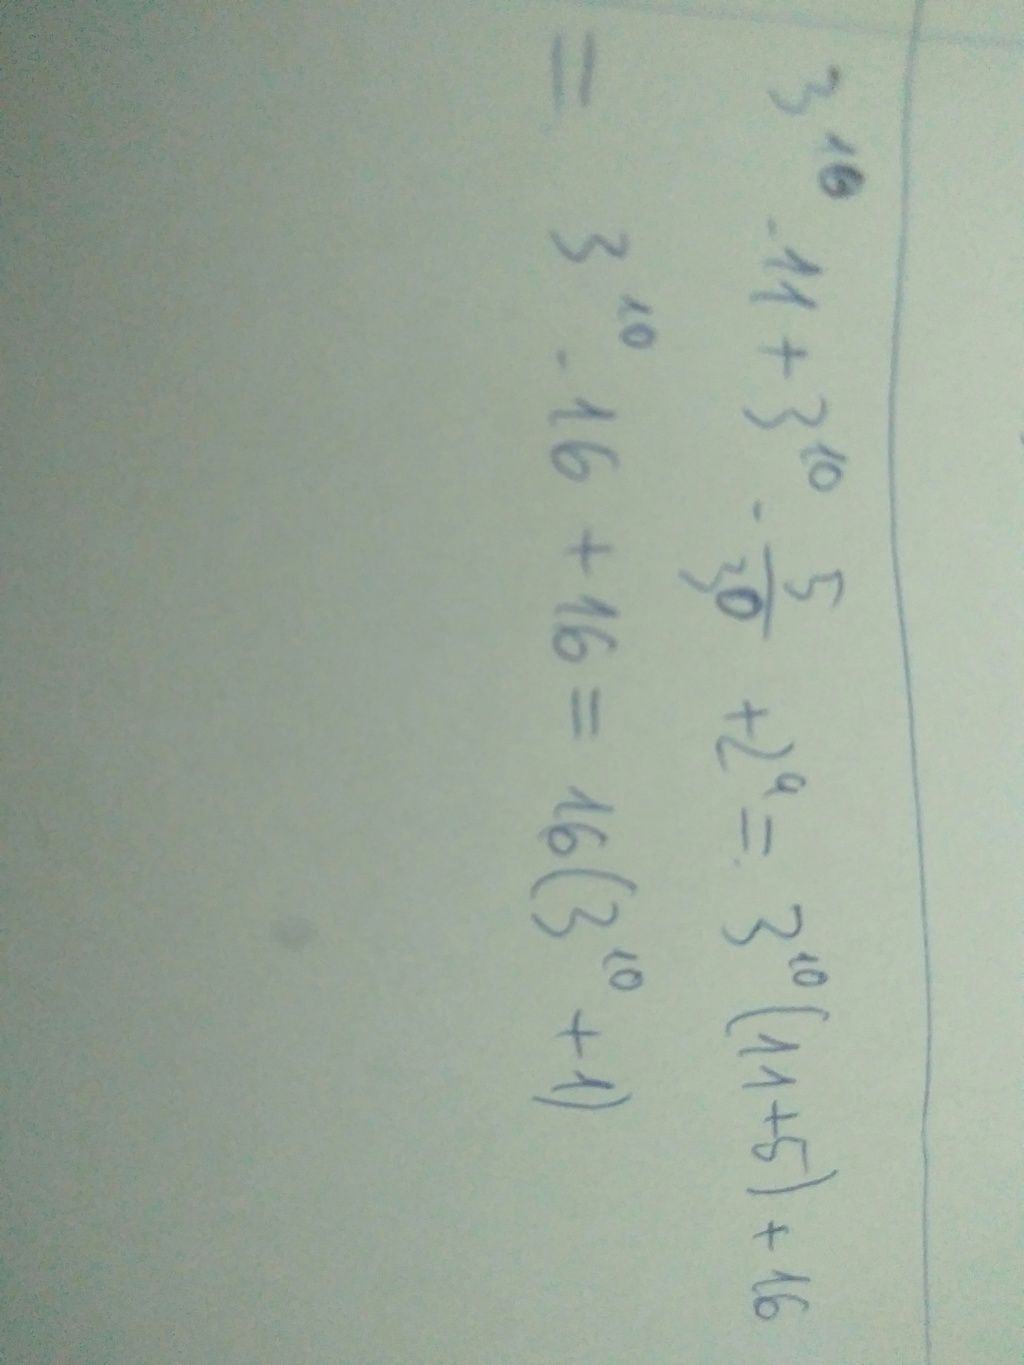 3^10 · 11 + 3^10 · 5/3^0 + 2^4 = 3^10 (11+5) + 16
= 3^10 · 16 + 16 = 16(3^10 + 1)